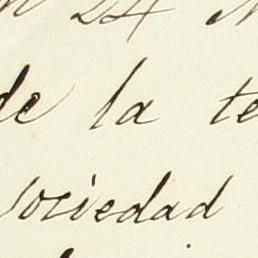 24
de la te
sociedad